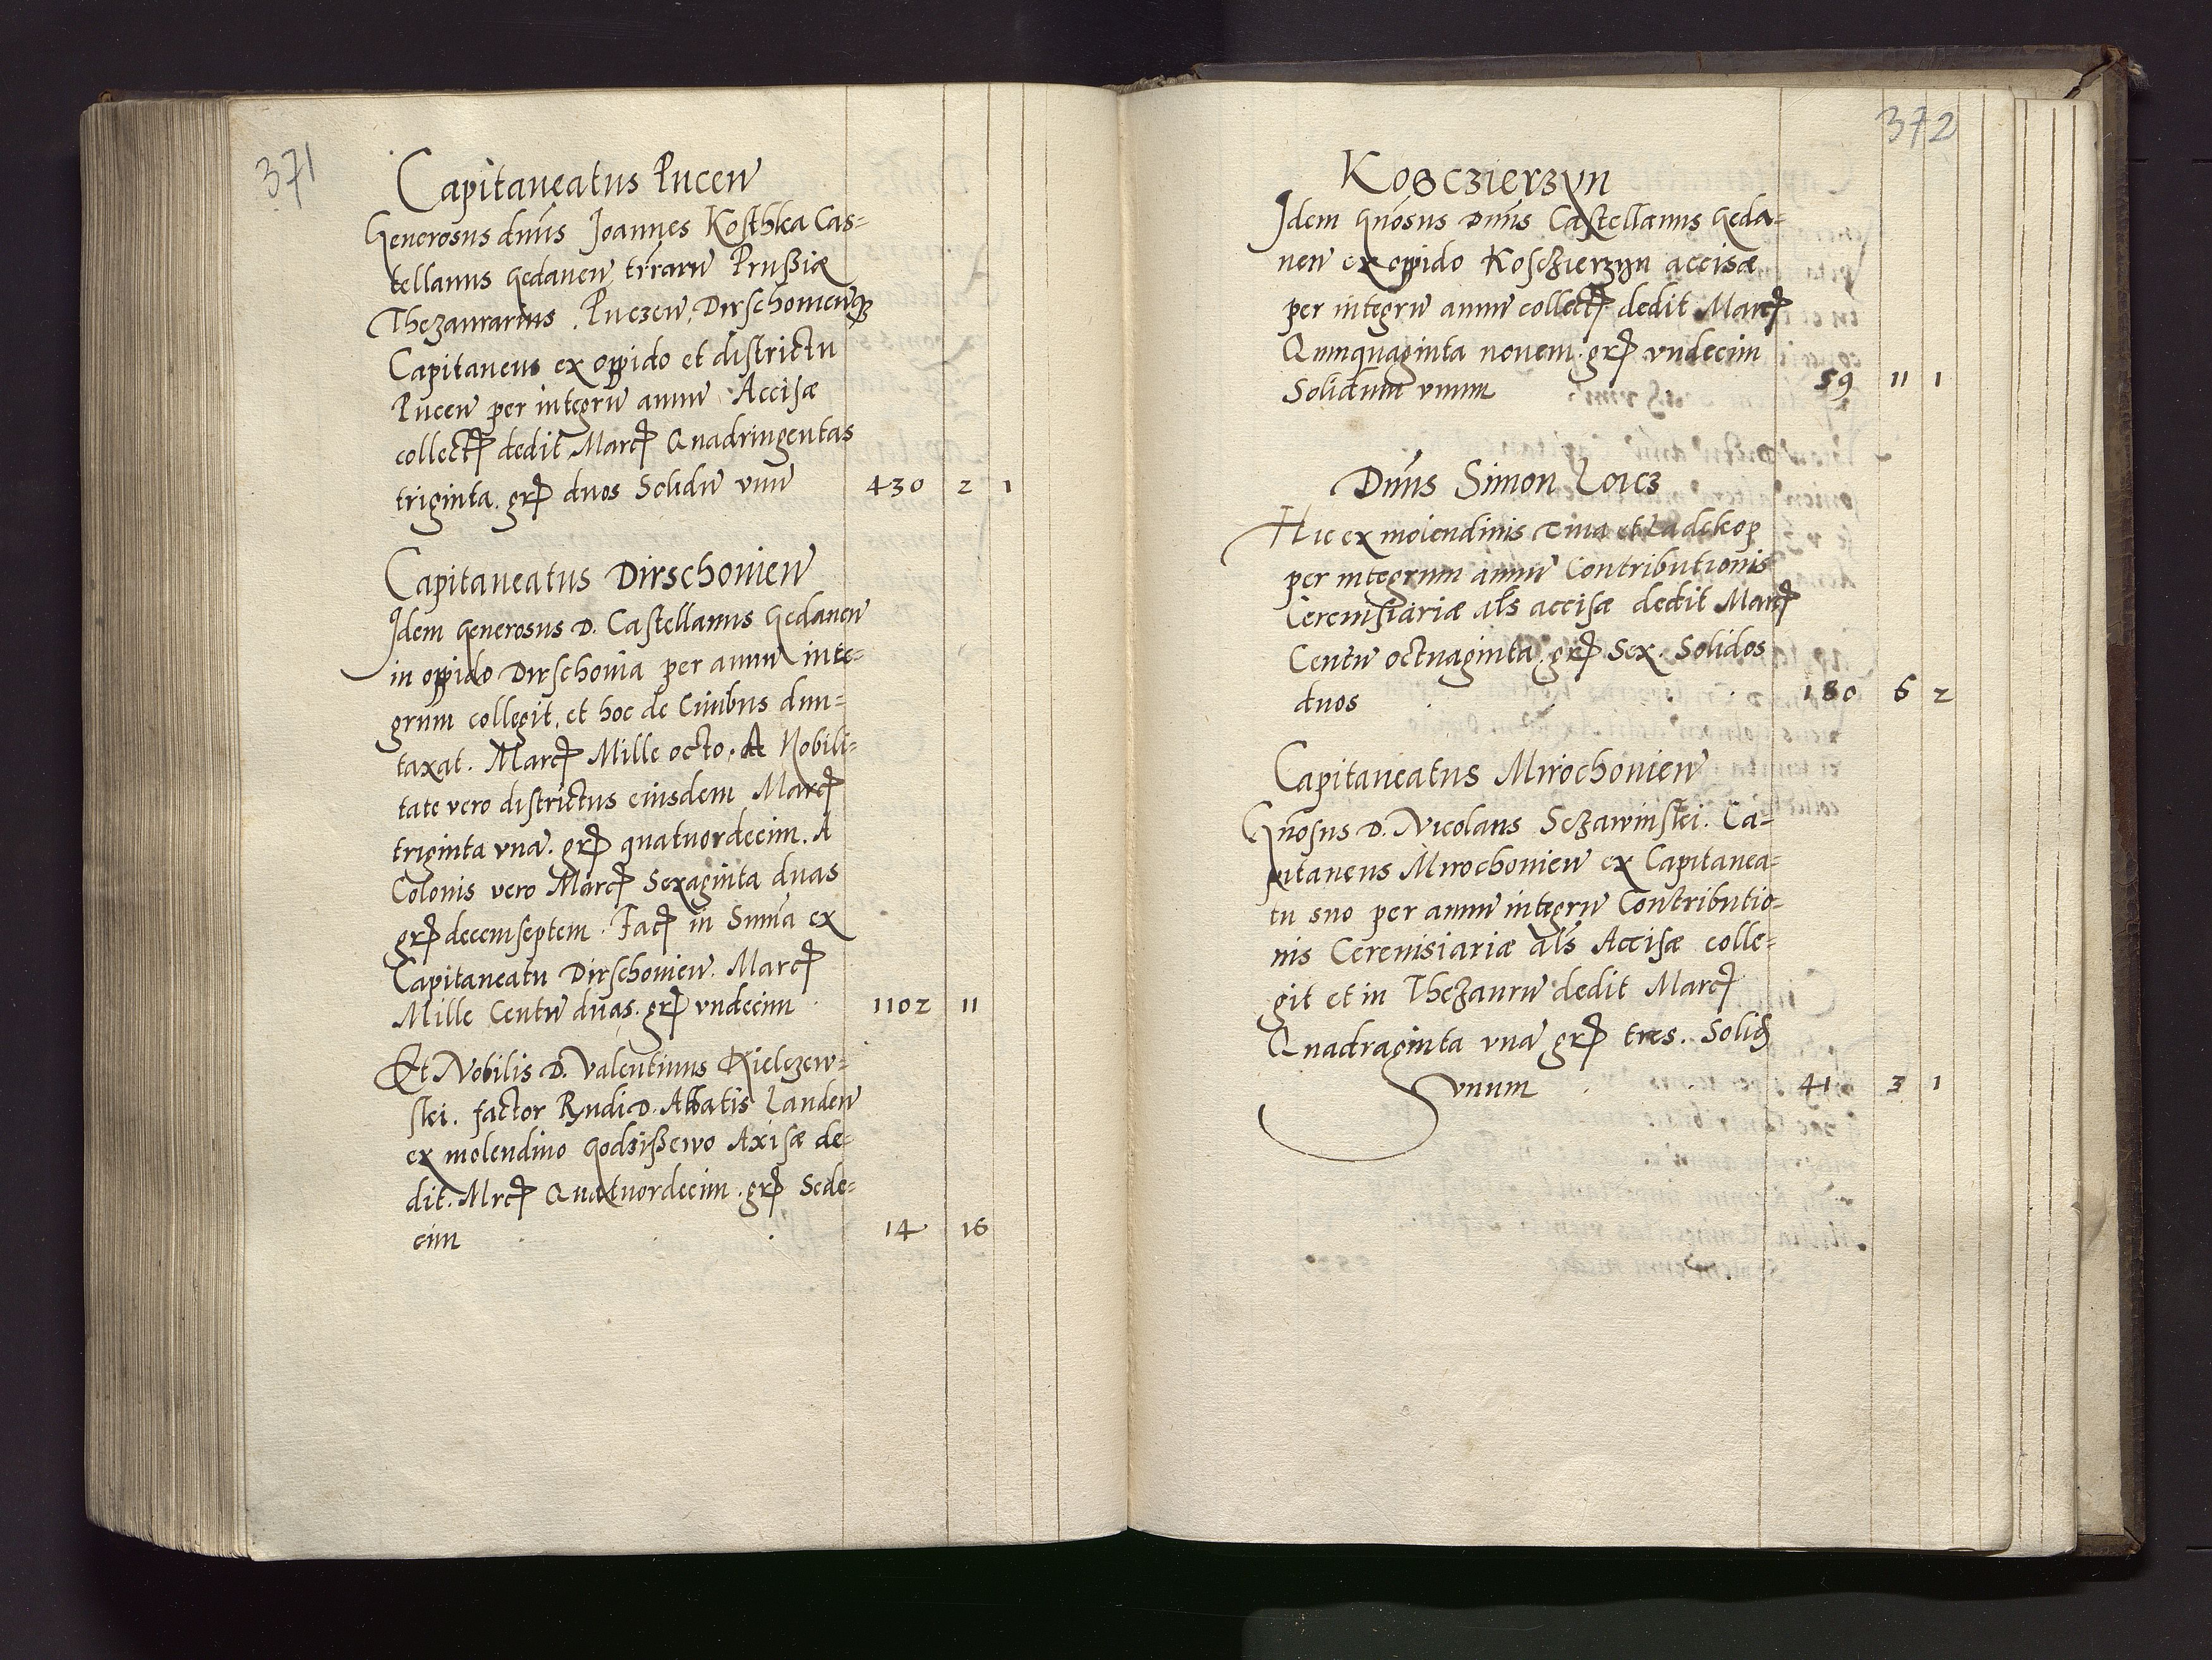 371
Capitaneatus Pucen
Generosus dnus Joannes Kosthka Cas=
tellanus Gedanen trraru Prußiæ
Thezaurarius, Puczen, Dirschoviensq
Capitaneus ex oppido et districtu
Pucen per integru annu Accisæ
collect dedit Marc Quadringentas
triginta. gr duos Solidu unu 430 2 1
Capitaneatus Dirschovien
Idem Generosus D. Castellanus Gedanen
in oppido Dirschovia per annu inte=
grum collegit, et hoc de Civibus dun=
taxat. Marc Mille octo. A Nobili=
tate vero districtus eiusdem Marc
triginta una. gr quatuordecim. A
Colonis vero Marc Sexaginta duas
gr decemseptem. Fac in Suma ex
Capitaneatu Dirschovien. Marc
Mille Centu duas. gr undecim 1102 11
Et Nobilis D. Valentinus Kielczew=
ski. factor Rndi D. Abbatis Landen
ex molendino Godzißewo Axisæ de=
dit. Mrc Quatuordecim. gr Sede=
cim 14 16
372
Kosczierzyn
Idem Gnosus Dnus Castellanus Geda=
nen ex oppido Kosczierzyn accisæ
per integru annu collect dedit Marc
Quinquaginta novem. gr undecim
Solidum unum 59 11 1
Dnus Simon Loicz
Hic ex moiendinis Tina et Ladekop
per integrum annu Contributionis
Cerevisiariæ als accisæ dedit Marc
Centu octuaginta. gr Sex. Solidos
duos 180 6 2
Capitaneatus Mirochovien
Gnosus D. Nicolaus Sczawinski. Ca=
pitaneus Mirochovien ex Capitanea=
tu suo per annu integru Contributio=
nis Cerevisiariæ als Accisæ colle=
git et in Thezauru dedit Marc
Quadraginta una gr tres. Solid
unum 41 3 1